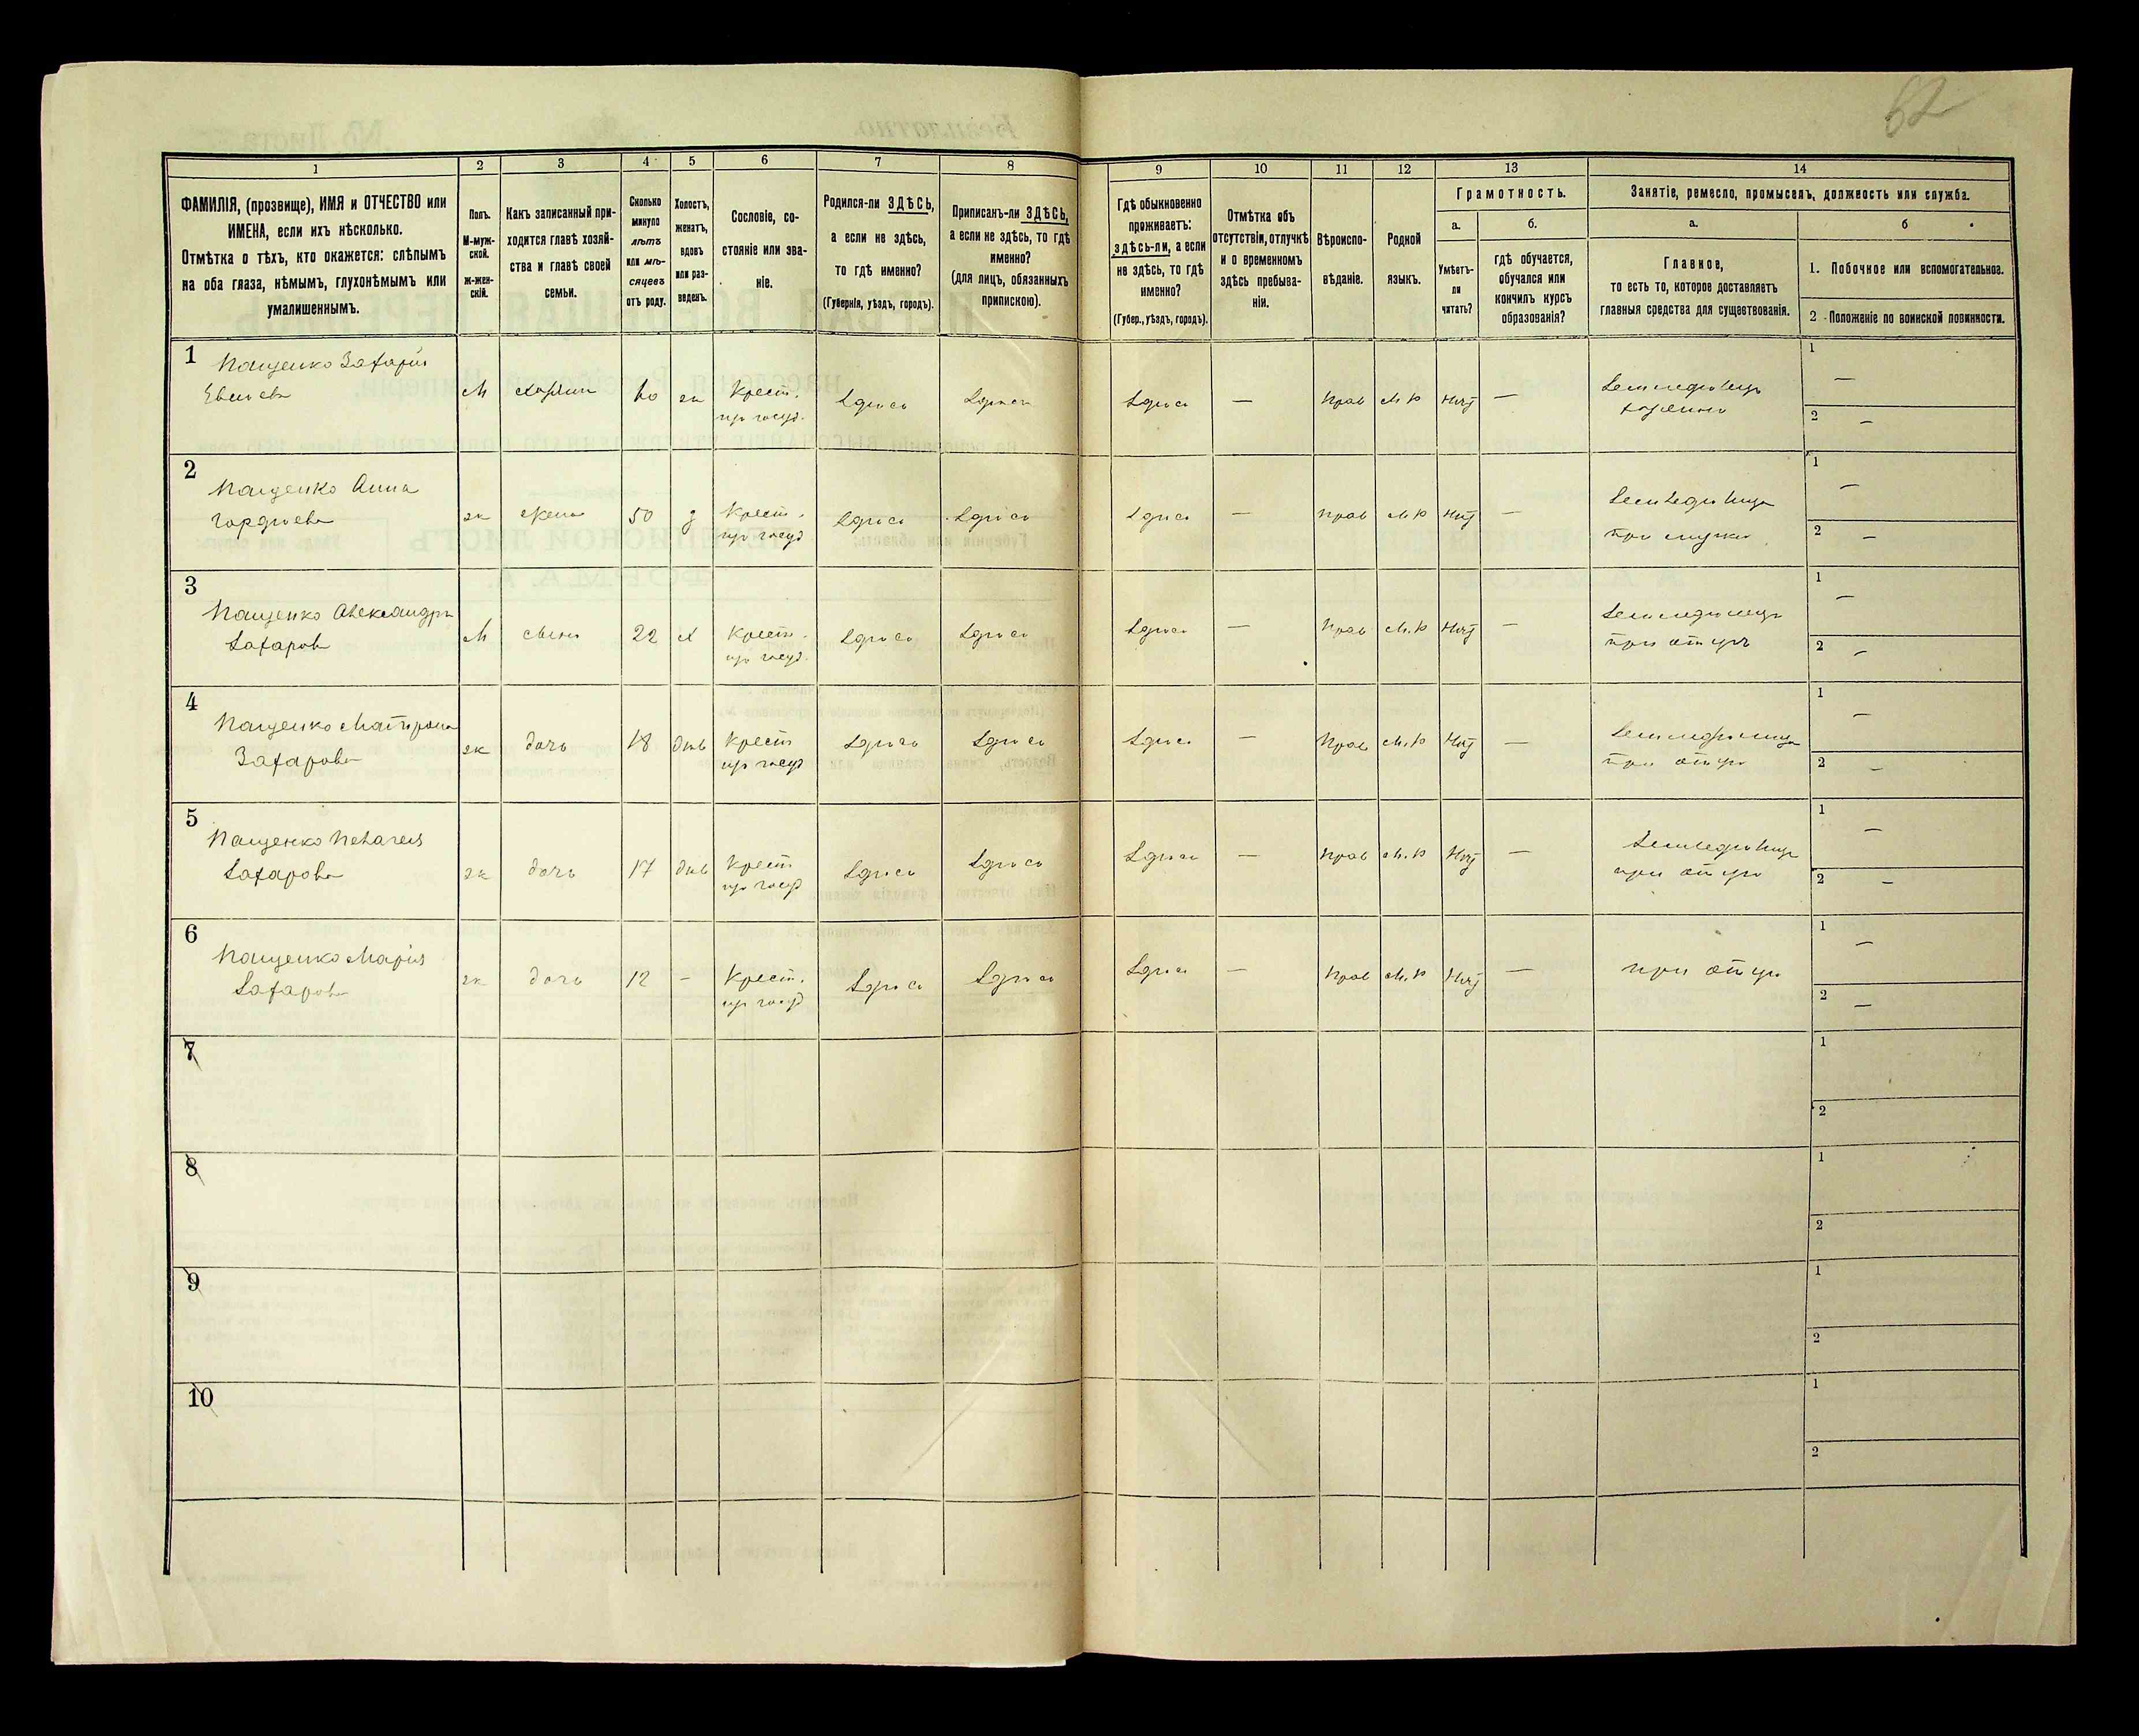 62
1 2 3 4 5 6 7 8 9 10 11 12 13 14
ФАМИЛІЯ, (прозвище), ИМЯ и ОТЧЕСТВО или
ИМЕНА, если ихъ нѣсколько.
Отмѣтка о тѣхъ, кто окажется: слѣпымъ
на оба глаза, нѣмымъ, глухонѣмымъ или
умалишеннымъ.
Полъ.
М-муж-
ской.
ж-жен-
скій.
Какъ записанный при-
ходится главѣ хозяй-
ства и главѣ своей
семьи.
Сколько
минуло
лѣтъ
или мѣ-
сяцевъ
отъ роду.
Холостъ,
женатъ,
вдовъ
или раз-
веденъ.
Сословіе, со-
стояніе или зва-
ніе.
Родился-ли ЗДѢСЬ,
а если не здѣсь,
то гдѣ именно?
(Губернія, уѣздъ, городъ).
Приписанъ-ли ЗДѢСЬ,
а если не здѣсь, то гдѣ
именно?
(для лицъ, обязанныхъ
припискою).
Гдѣ обыкновенно
проживаетъ:
здѣсь-ли, а если
не здѣсь, то гдѣ
именно?
(Губер., уѣздъ, городъ).
Отмѣтка объ
отсутствіи, отлучкѣ
и о временномъ
здѣсь пребыва-
ніи.
Вѣроиспо-
вѣданіе.
Родной
языкъ.
Грамотность.
а.
Умѣетъ-
ли
читать?
б.
гдѣ обучается,
обучался или
кончилъ курсъ
образованія?
Занятіе, ремесло, промыселъ, должность или служба.
а.
Главное,
то есть то, которое доставляетъ
главныя средства для существованія.
б
1. Побочное или вспомогательное.
2 - Положеніе по воинской повинности.
1
Пащенко Захарій
М хозяин 60 ж Крест.
из госуд.
Здѣсь Здѣсь Здѣсь — Прав М.р Нѣт —
Земледѣлец
хозяин
1 —
2 —
2
Пащенко Анна
Гордѣева
ж жена 50 з Крест.
из госуд
Здѣсь Здѣсь Здѣсь — Прав М.р Нѣт —
при мужѣ
1 —
2 —
3
Пащенко Александръ
Захаров
М сынъ 22 х Крест.
из госуд.
Здѣсь Здѣсь Здѣсь — Прав М.р Нѣт —
Земледѣлец
при отцѣ
1 —
2 —
4
Пащенко Матрона
Захарова
ж дочь 18 дѣв Крест
из госуд
Здѣсь Здѣсь Здѣсь — Прав М.р Нѣт —
при отцѣ
1 —
2 —
5
Пащенко Пелагея
Захарова
ж дочь 17 дѣв Крест
из госуд
Здѣсь Здѣсь Здѣсь — Прав М.р Нѣт —
при отцѣ
1 —
2 —
6
Пащенко Марія
Захарова
ж дочь 12 - Крест.
из госуд
Здѣсь Здѣсь Здѣсь — Прав М.р Нѣт —
при отцѣ
1 —
2 —
7
1
2
8
1
2
9
1
2
10
1
2